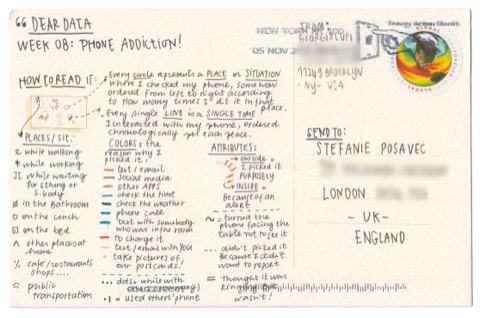 DEAR DATA
WEEK 08: PHONE ADDICTION!
HOW TO READ IT:
Every circle represents a PLACE or SITUATION
where I checked my phone, somehow
ordered from left to right according
to how many times I did it in that place.
Every single LINE is a SINGLE TIME
I interacted with my phone, ordered
chronologically per each place.
PLACES/SIT.
while walking
while working
while waiting
for sthing or
s.body
in the bathroom
on the couch
on the bed
other places at
home
cafè/restaurants
shops....
public
transportation
COLORS: the
reason why I
picked it:
text/email
social media
other APPS
check the time
check the weather
phone call
text with somebody
who was in the room
to charge it
text/email with you
take pictures of
our postcards!
dots = while with
= used others' phone
ATTRIBUTES:
outside =
I picked it
PURPOSELY
INSIDE =
Because of an
alert
= turned the
phone facing the
table not to see it
didn't picked it
because I didn't
want to report
= thought it was
ringing but
wasn't!
FROM:
GIORGIA LUPI
11249 BROOKLYN
NY- USA
GLOBAL
SEND TO:
STEFANIE POSAVEC
LONDON
- UK -
ENGLAND